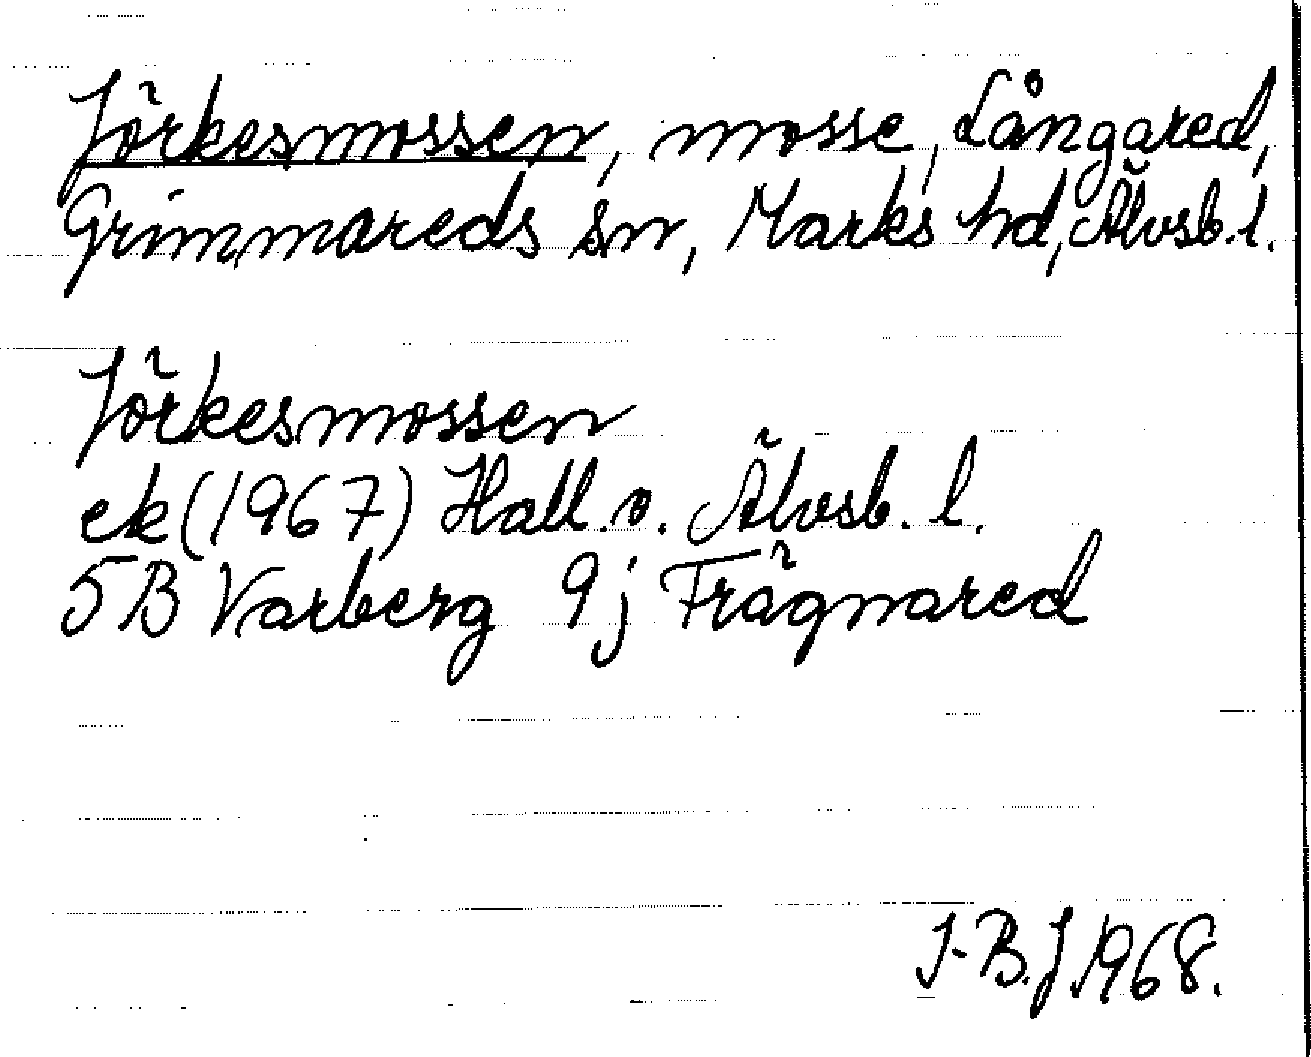 Jörkesmossen, mosse, Långared,
Grimmareds sn, Marks hd, Älvsb. l.
Jörkesmossen
ek (1967) Hall. o. Älvsb. l.
5B Varberg 9j Frägnared
I-B.J. 1968.